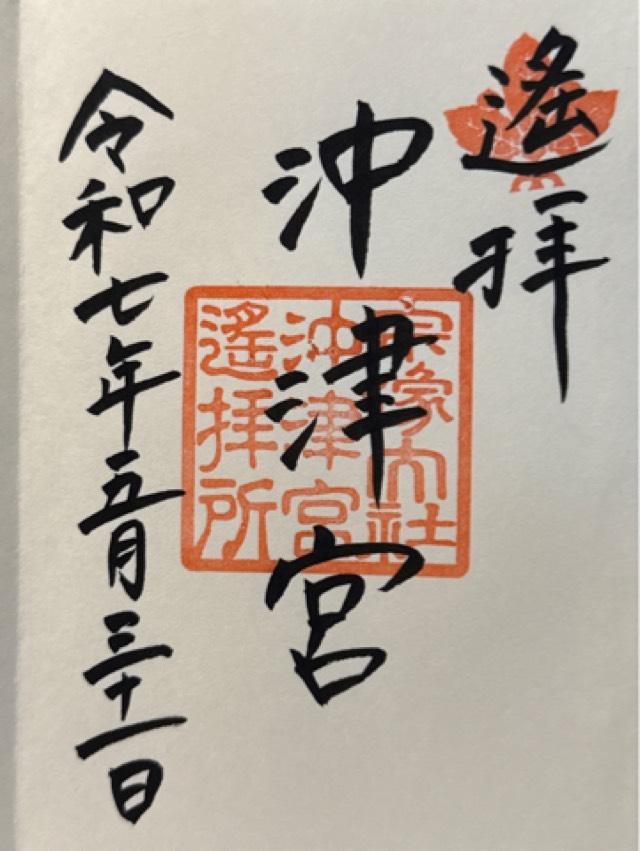 遙拝
沖津宮
宗像大社
沖津宮
遙拝所
令和七年五月三十一日